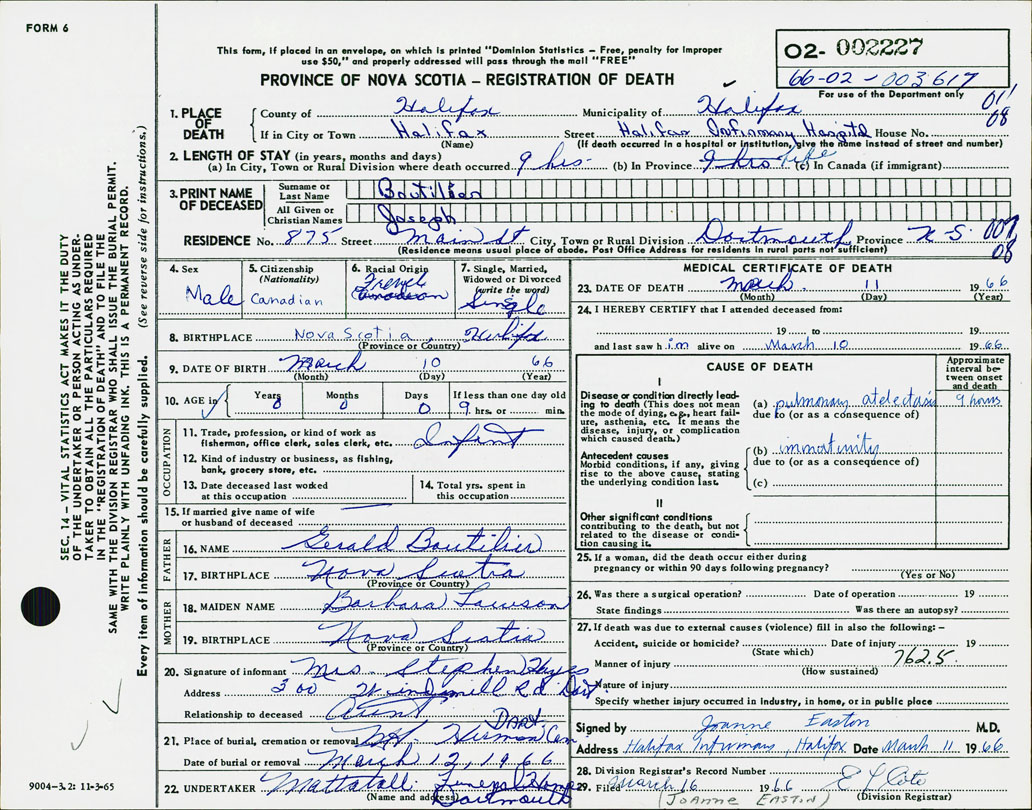 FORM 6
This form, if placed in an envelope, on which is printed "Dominion Statistics – Free, penalty for improper
use $50," and properly addressed will pass through the mail "FREE"
PROVINCE OF NOVA SCOTIA – REGISTRATION OF DEATH
02- 002227
66-02-003617
For use of the Department only
011
08
1. PLACE OF DEATH
County of Halifax Municipality of Halifax
If in City or Town Halifax Street Halifax Infirmary Hospital House No.
(Name) (If death occurred in a hospital or institution, give the name instead of street and number)
2. LENGTH OF STAY (in years, months and days)
(a) In City, Town or Rural Division where death occurred 9 hrs- (b) In Province 9 hrs Life (c) In Canada (if immigrant)
3. PRINT NAME OF DECEASED
Surname or Last Name Boutilier
All Given or Christian Names Joseph
RESIDENCE No. 875 Street Main St City, Town or Rural Division Dartmouth Province N-S. 007
08
(Residence means usual place of abode. Post Office Address for residents in rural parts not sufficient)
4. Sex Male
5. Citizenship (Nationality) Canadian
6. Racial Origin French Canadian
7. Single, Married, Widowed or Divorced (write the word) Single
8. BIRTHPLACE Nova Scotia, Halifax
(Province or Country)
9. DATE OF BIRTH March 10 66
(Month) (Day) (Year)
10. AGE in Years 0 Months 0 Days 0 If less than one day old 9 hrs. or min.
OCCUPATION
11. Trade, profession, or kind of work as
fisherman, office clerk, sales clerk, etc. Infant
12. Kind of industry or business, as fishing,
bank, grocery store, etc.
13. Date deceased last worked
at this occupation
14. Total yrs. spent in
this occupation
15. If married give name of wife
or husband of deceased
FATHER
16. NAME Gerald Boutilier
17. BIRTHPLACE Nova Scotia
(Province or Country)
MOTHER
18. MAIDEN NAME Barbara Lawson
19. BIRTHPLACE Nova Scotia
(Province or Country)
20. Signature of informant Mrs. Stephen Hayes
Address 300 Windmill Rd Dart.
Relationship to deceased Aunt
Dart.
21. Place of burial, cremation or removal Mt. Hermon Cem
Date of burial or removal March 12, 1966
22. UNDERTAKER Mattatall Funeral Home
(Name and address) Dartmouth
MEDICAL CERTIFICATE OF DEATH
23. DATE OF DEATH March 11 1966
(Month) (Day) (Year)
24. I HEREBY CERTIFY that I attended deceased from:
19 to 19
and last saw him alive on March 10 1966
CAUSE OF DEATH
Approximate interval between onset and death
I
Disease or condition directly leading
to death (This does not mean
the mode of dying, e.g., heart failure,
asthenia, etc. It means the
disease, injury, or complication
which caused death.)
(a) pulmonary atelectasis 9 hours
due to (or as a consequence of)
Antecedent causes
Morbid conditions, if any, giving
rise to the above cause, stating
the underlying condition last.
(b) immaturity
due to (or as a consequence of)
(c)
II
Other significant conditions
contributing to the death, but not
related to the disease or condition
causing it.
25. If a woman, did the death occur either during
pregnancy or within 90 days following pregnancy?
(Yes or No)
26. Was there a surgical operation? Date of operation 19
State findings Was there an autopsy?
27. If death was due to external causes (violence) fill in also the following:–
Accident, suicide or homicide? Date of injury 19
(State which)
Manner of injury 762.5.
(How sustained)
Nature of injury
Specify whether injury occurred in industry, in home, or in public place
Signed by Joanne Easton M.D.
Address Halifax Infirmary, Halifax Date March 11 1966
28. Division Registrar's Record Number
29. Filed March 16 1966
(JOANNE EASTON) (Division Registrar)
SEC. 14 – VITAL STATISTICS ACT MAKES IT THE DUTY
OF THE UNDERTAKER OR PERSON ACTING AS UNDERTAKER
TO OBTAIN ALL THE PARTICULARS REQUIRED
IN THE "REGISTRATION OF DEATH" AND TO FILE THE
SAME WITH THE DIVISION REGISTRAR WHO SHALL ISSUE THE BURIAL PERMIT.
WRITE PLAINLY WITH UNFADING INK. THIS IS A PERMANENT RECORD.
Every item of information should be carefully supplied. (See reverse side for instructions.)
9004-3.2: 11-3-65